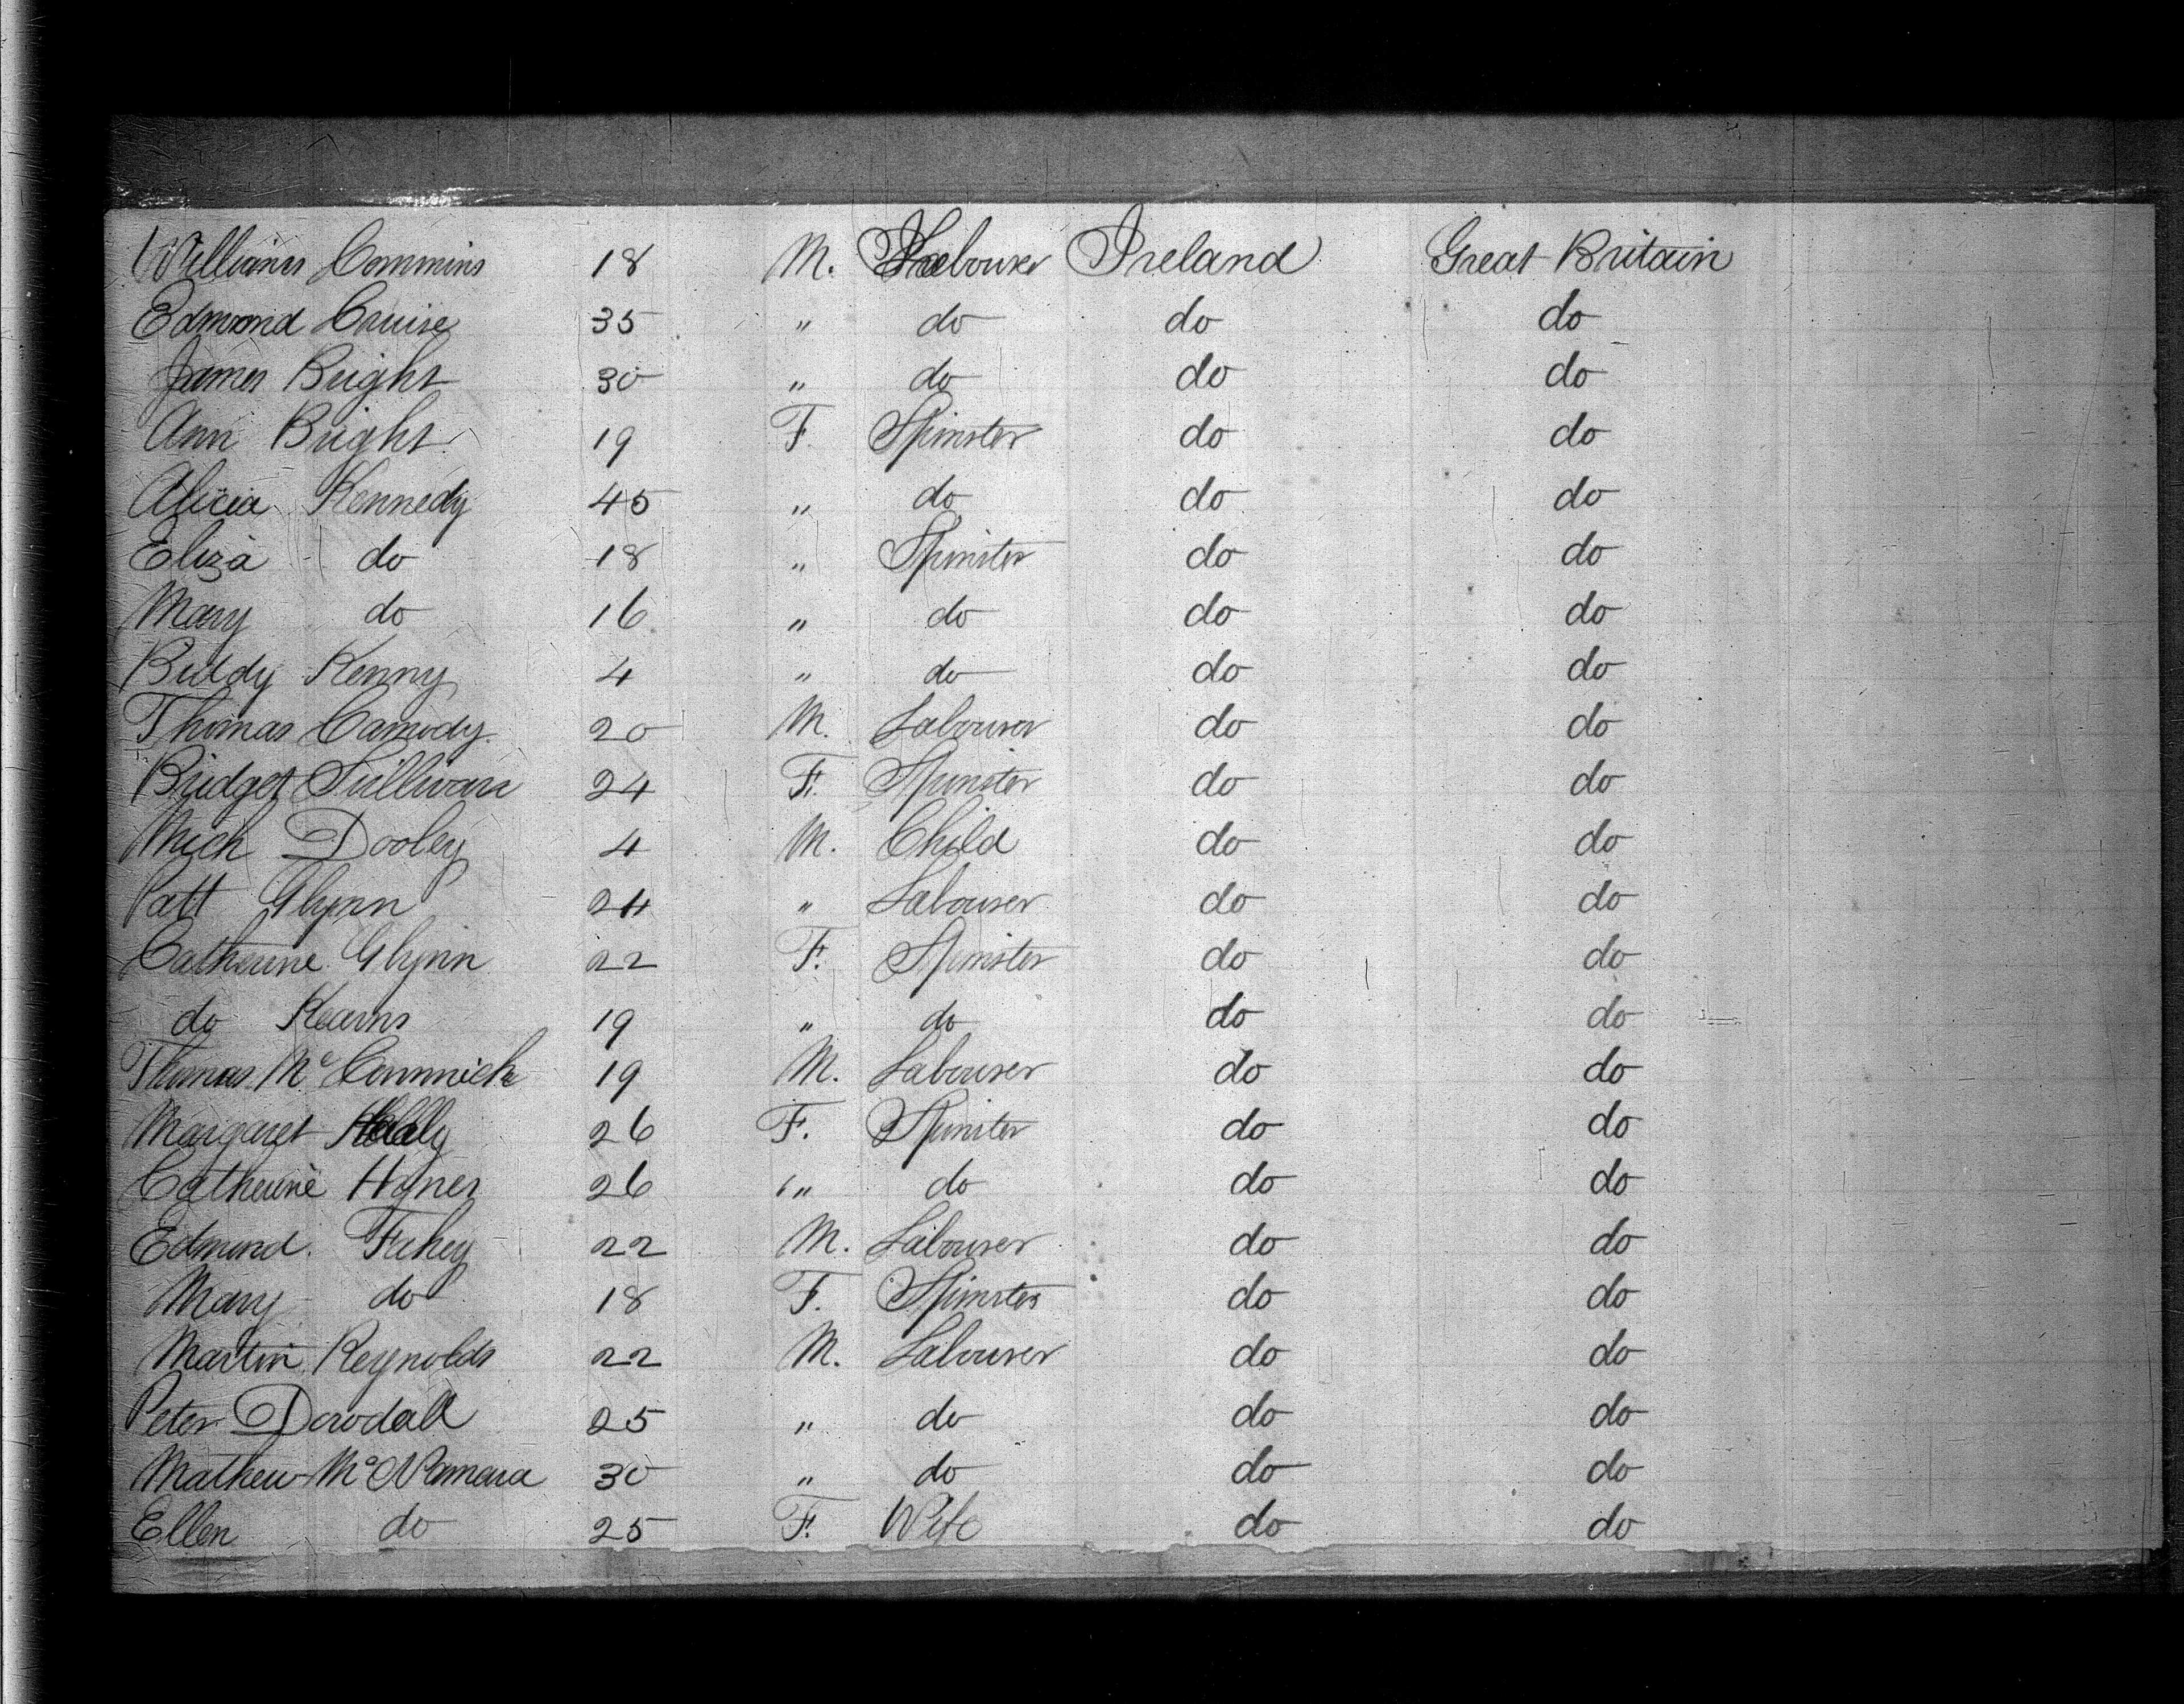 William Commins 18 M. Labourer Ireland Great Britain
Edmond Cruise 35 " do do do
James Bright 30 " do do do
Ann Bright 19 F. Spinster do do
Alicia Kennedy 45 " do do do
Eliza do 18 " Spinster do do
Mary do 16 " do do do
Biddy Kenny 4 " do do do
Thomas Carmody 20 M. Labourer do do
Bridget Sullivan 24 F. Spinster do do
Mich Dooley 4 M. Child do do
Patt Glynn 24 " Labourer do do
Catherine Glynn 22 F. Spinster do do
do Kearns 19 " do do do
Thomas Mc Cormick 19 M. Labourer do do
Margaret 26 F. Spinster do do
Catherine Hynes 26 " do do do
Edmund Fahey 22 M. Labourer do do
Mary do 18 F. Spinster do do
Martin Reynolds 22 M. Labourer do do
Peter Dowdall 25 " do do do
Mathew McNamara 30 " do do do
Ellen do 25 F. Wife do do